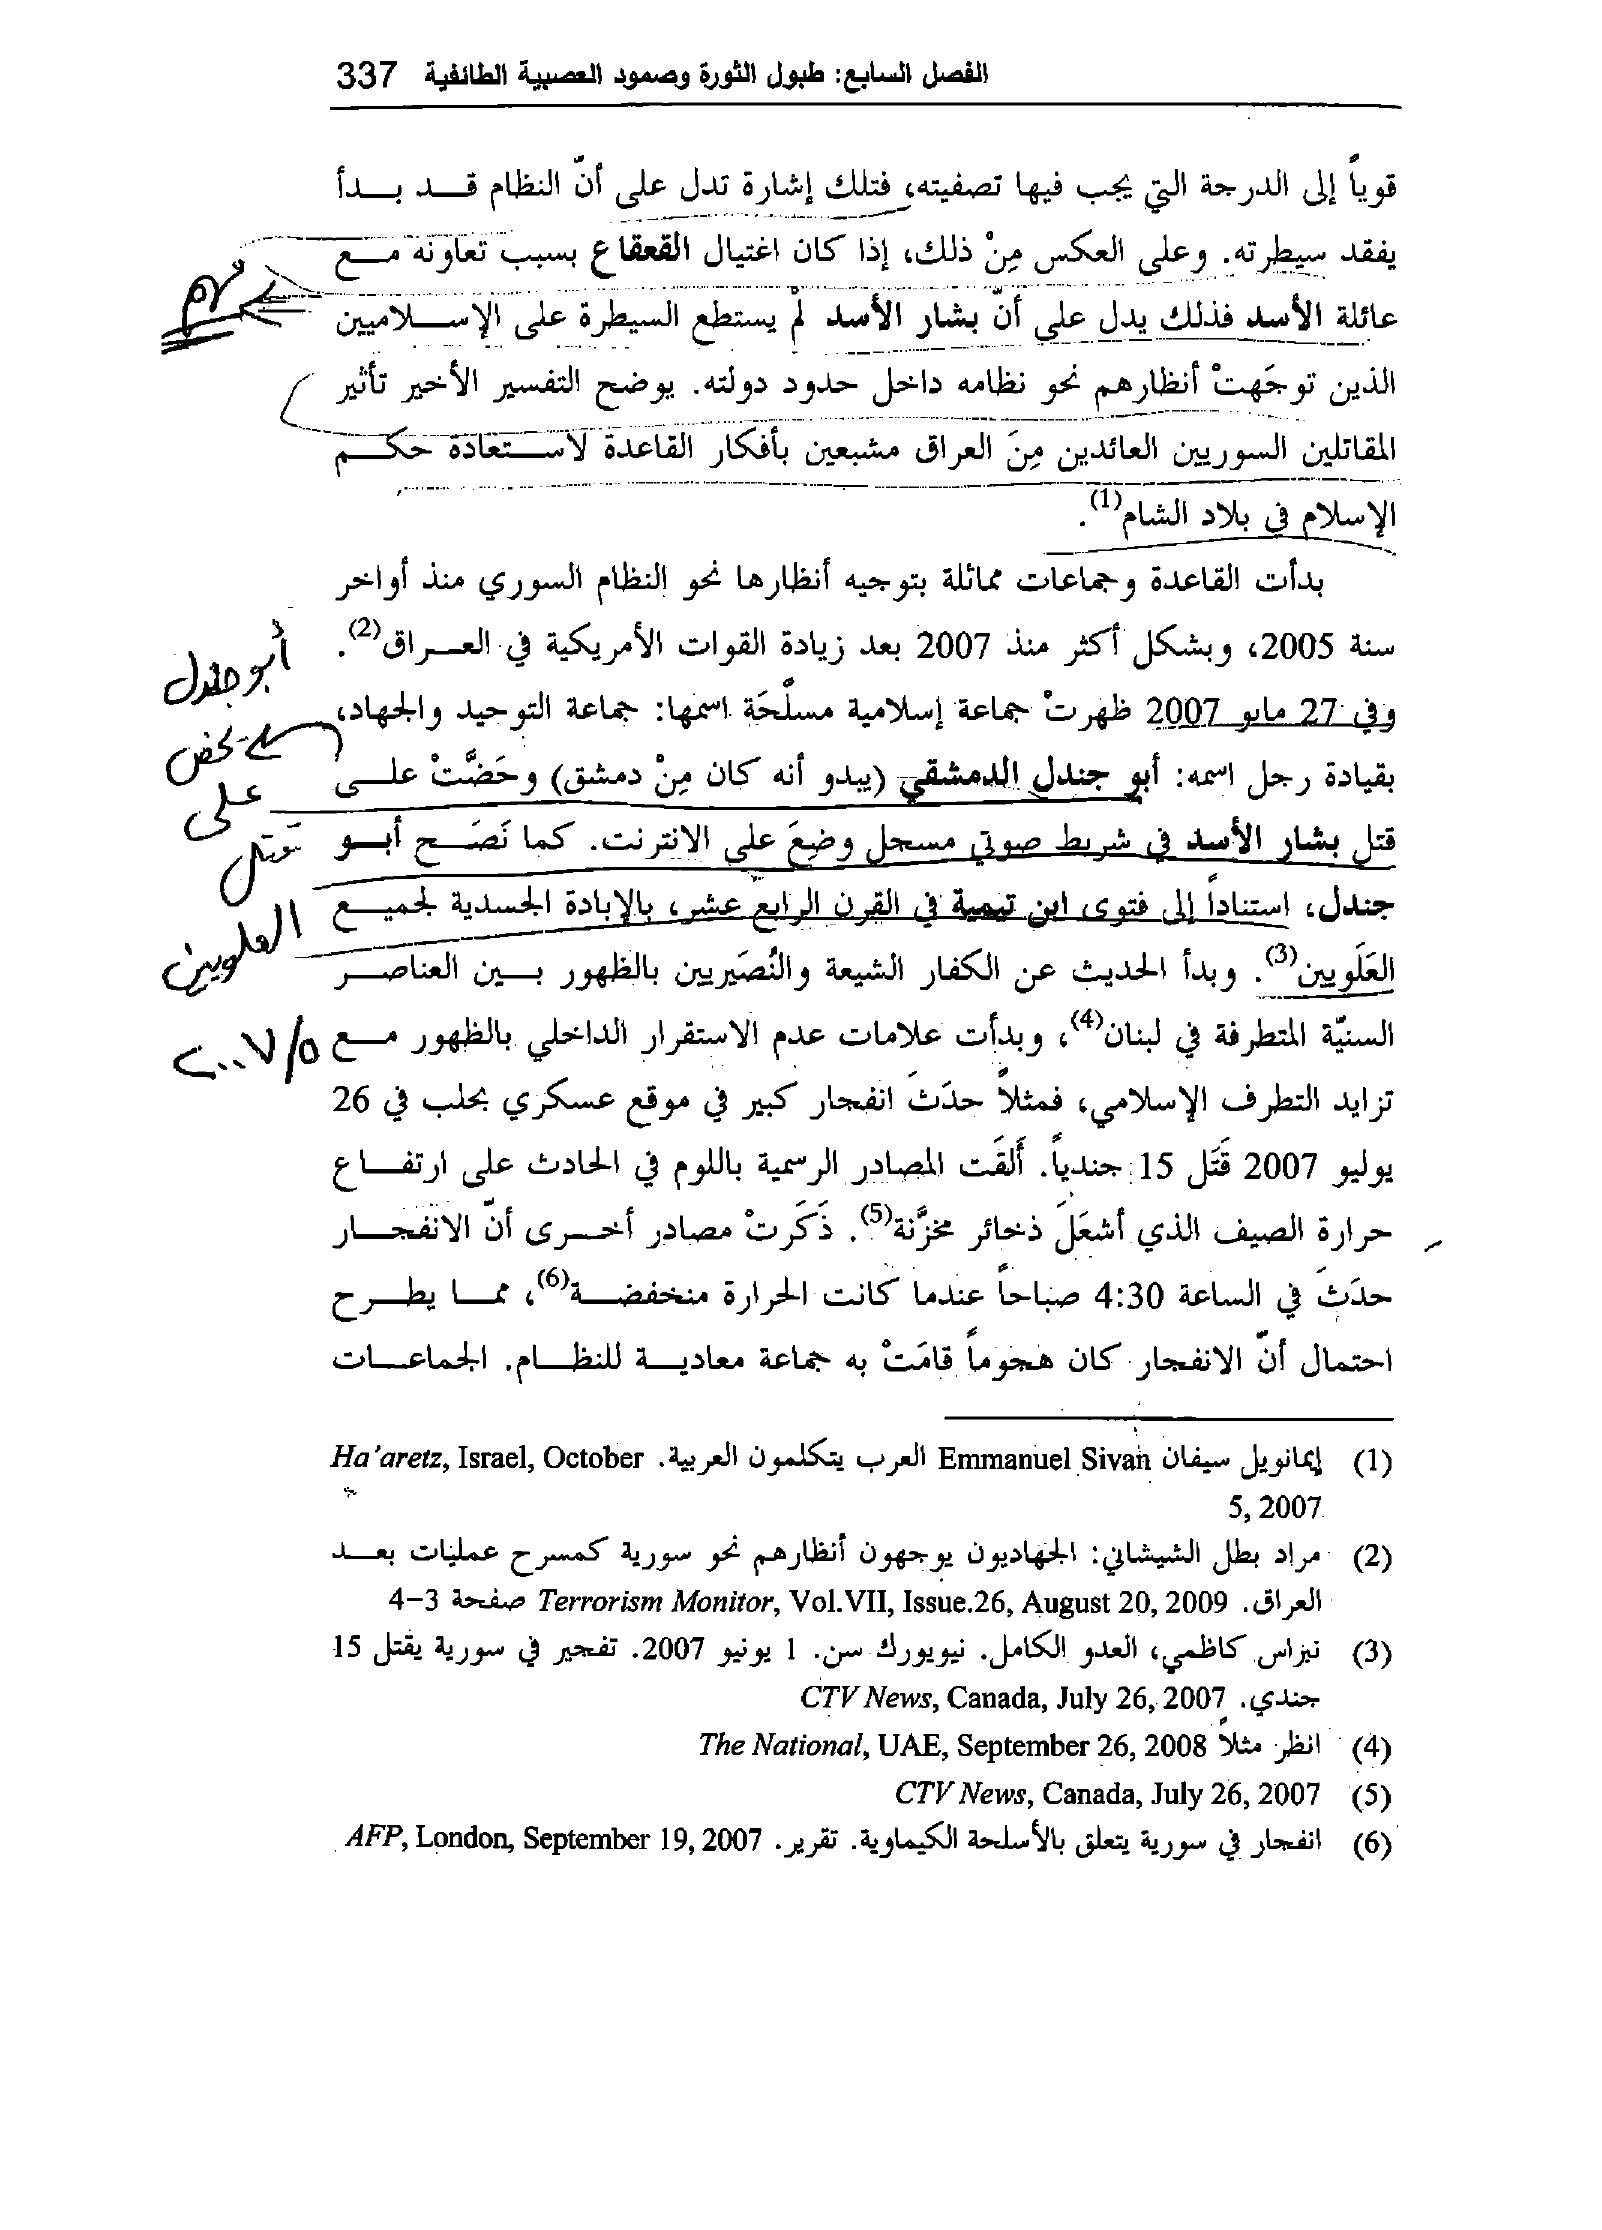 الفصل السابع: طبول الثورة وصمود العصبية الطائفية 337
قوياً إلى الدرجة التي يجب فيها تصفيته، فتلك إشارة تدل على أنّ النظام قـــد بـــدأ
يفقد سيطرته. وعلى العكس مِنْ ذلك، إذا كان اغتيال القعقاع بسبب تعاونه مـــع
مهم
عائلة الأسد فذلك يدل على أنّ بشار الأسد لمْ يستطع السيطرة على الإســـلاميين
الذين توجَهتْ أنظارهم نحو نظامه داخل حدود دولته. يوضح التفسير الأخير تأثير
المقاتلين السوريين العائدين مِنَ العراق مشبعين بأفكار القاعدة لاســـتعادة حكـــم
الإسلام في بلاد الشام(1).
بدأت القاعدة وجماعات مماثلة بتوجيه أنظارها نحو النظام السوري منذ أواخر
سنة 2005، وبشكل أكثر منذ 2007 بعد زيادة القوات الأمريكية في العـــراق(2).
وفي 27 مايو 2007 ظهرتْ جماعة إسلامية مسلّحَة اسمها: جماعة التوحيد والجهاد،
بقيادة رجل اسمه: أبو جندل الدمشقي (يبدو أنه كان مِنْ دمشق) وحَضَّتْ علـــى
قتل بشار الأسد في شريط صوتي مسجل وضِعَ على الانترنت. كما نَصَـــح أبـــو
جندل، استناداً إلى فتوى ابن تيمية في القرن الرابع عشر، بالإبادة الجسدية لجميـــع
العَلَويين(3). وبدأ الحديث عن الكفار الشيعة والنُصَيريين بالظهور بـــين العناصـــر
السنيّة المتطرفة في لبنان(4)، وبدأت علامات عدم الاستقرار الداخلي بالظهور مـــع
تزايد التطرف الإسلامي، فمثلاً حدَثَ انفجار كبير في موقع عسكري بحلب في 26
يوليو 2007 قَتَل 15 جندياً. أَلقَت المصادر الرسمية باللوم في الحادث على ارتفـــاع
حرارة الصيف الذي أشعَلَ ذخائر مخزَّنة(5). ذَكَرتْ مصادر أخـــرى أنّ الانفجـــار
حدَثَ في الساعة 4:30 صباحاً عندما كانت الحرارة منخفضـــة(6)، ممـــا يطـــرح
احتمال أنّ الانفجار كان هجوماً قامَتْ به جماعة معاديـــة للنظـــام. الجماعـــات
أبو جندل
يحض
على
قتل
العلويين
٢٠٠٧/٥
(1) إيمانويل سيفان Emmanuel Sivan العرب يتكلمون العربية. Ha'aretz, Israel, October
5, 2007
(2) مراد بطل الشيشاني: الجهاديون يوجهون أنظارهم نحو سورية كمسرح عمليات بعـــد
العراق. Terrorism Monitor, Vol.VII, Issue.26, August 20, 2009 صفحة 3-4
(3) نيراس كاظمي، العدو الكامل. نيويورك سن. 1 يونيو 2007. تفجير في سورية يقتل 15
جندي. CTV News, Canada, July 26, 2007
(4) انظر مثلاً The National, UAE, September 26, 2008
(5) CTV News, Canada, July 26, 2007
(6) انفجار في سورية يتعلق بالأسلحة الكيماوية. تقرير. AFP, London, September 19, 2007